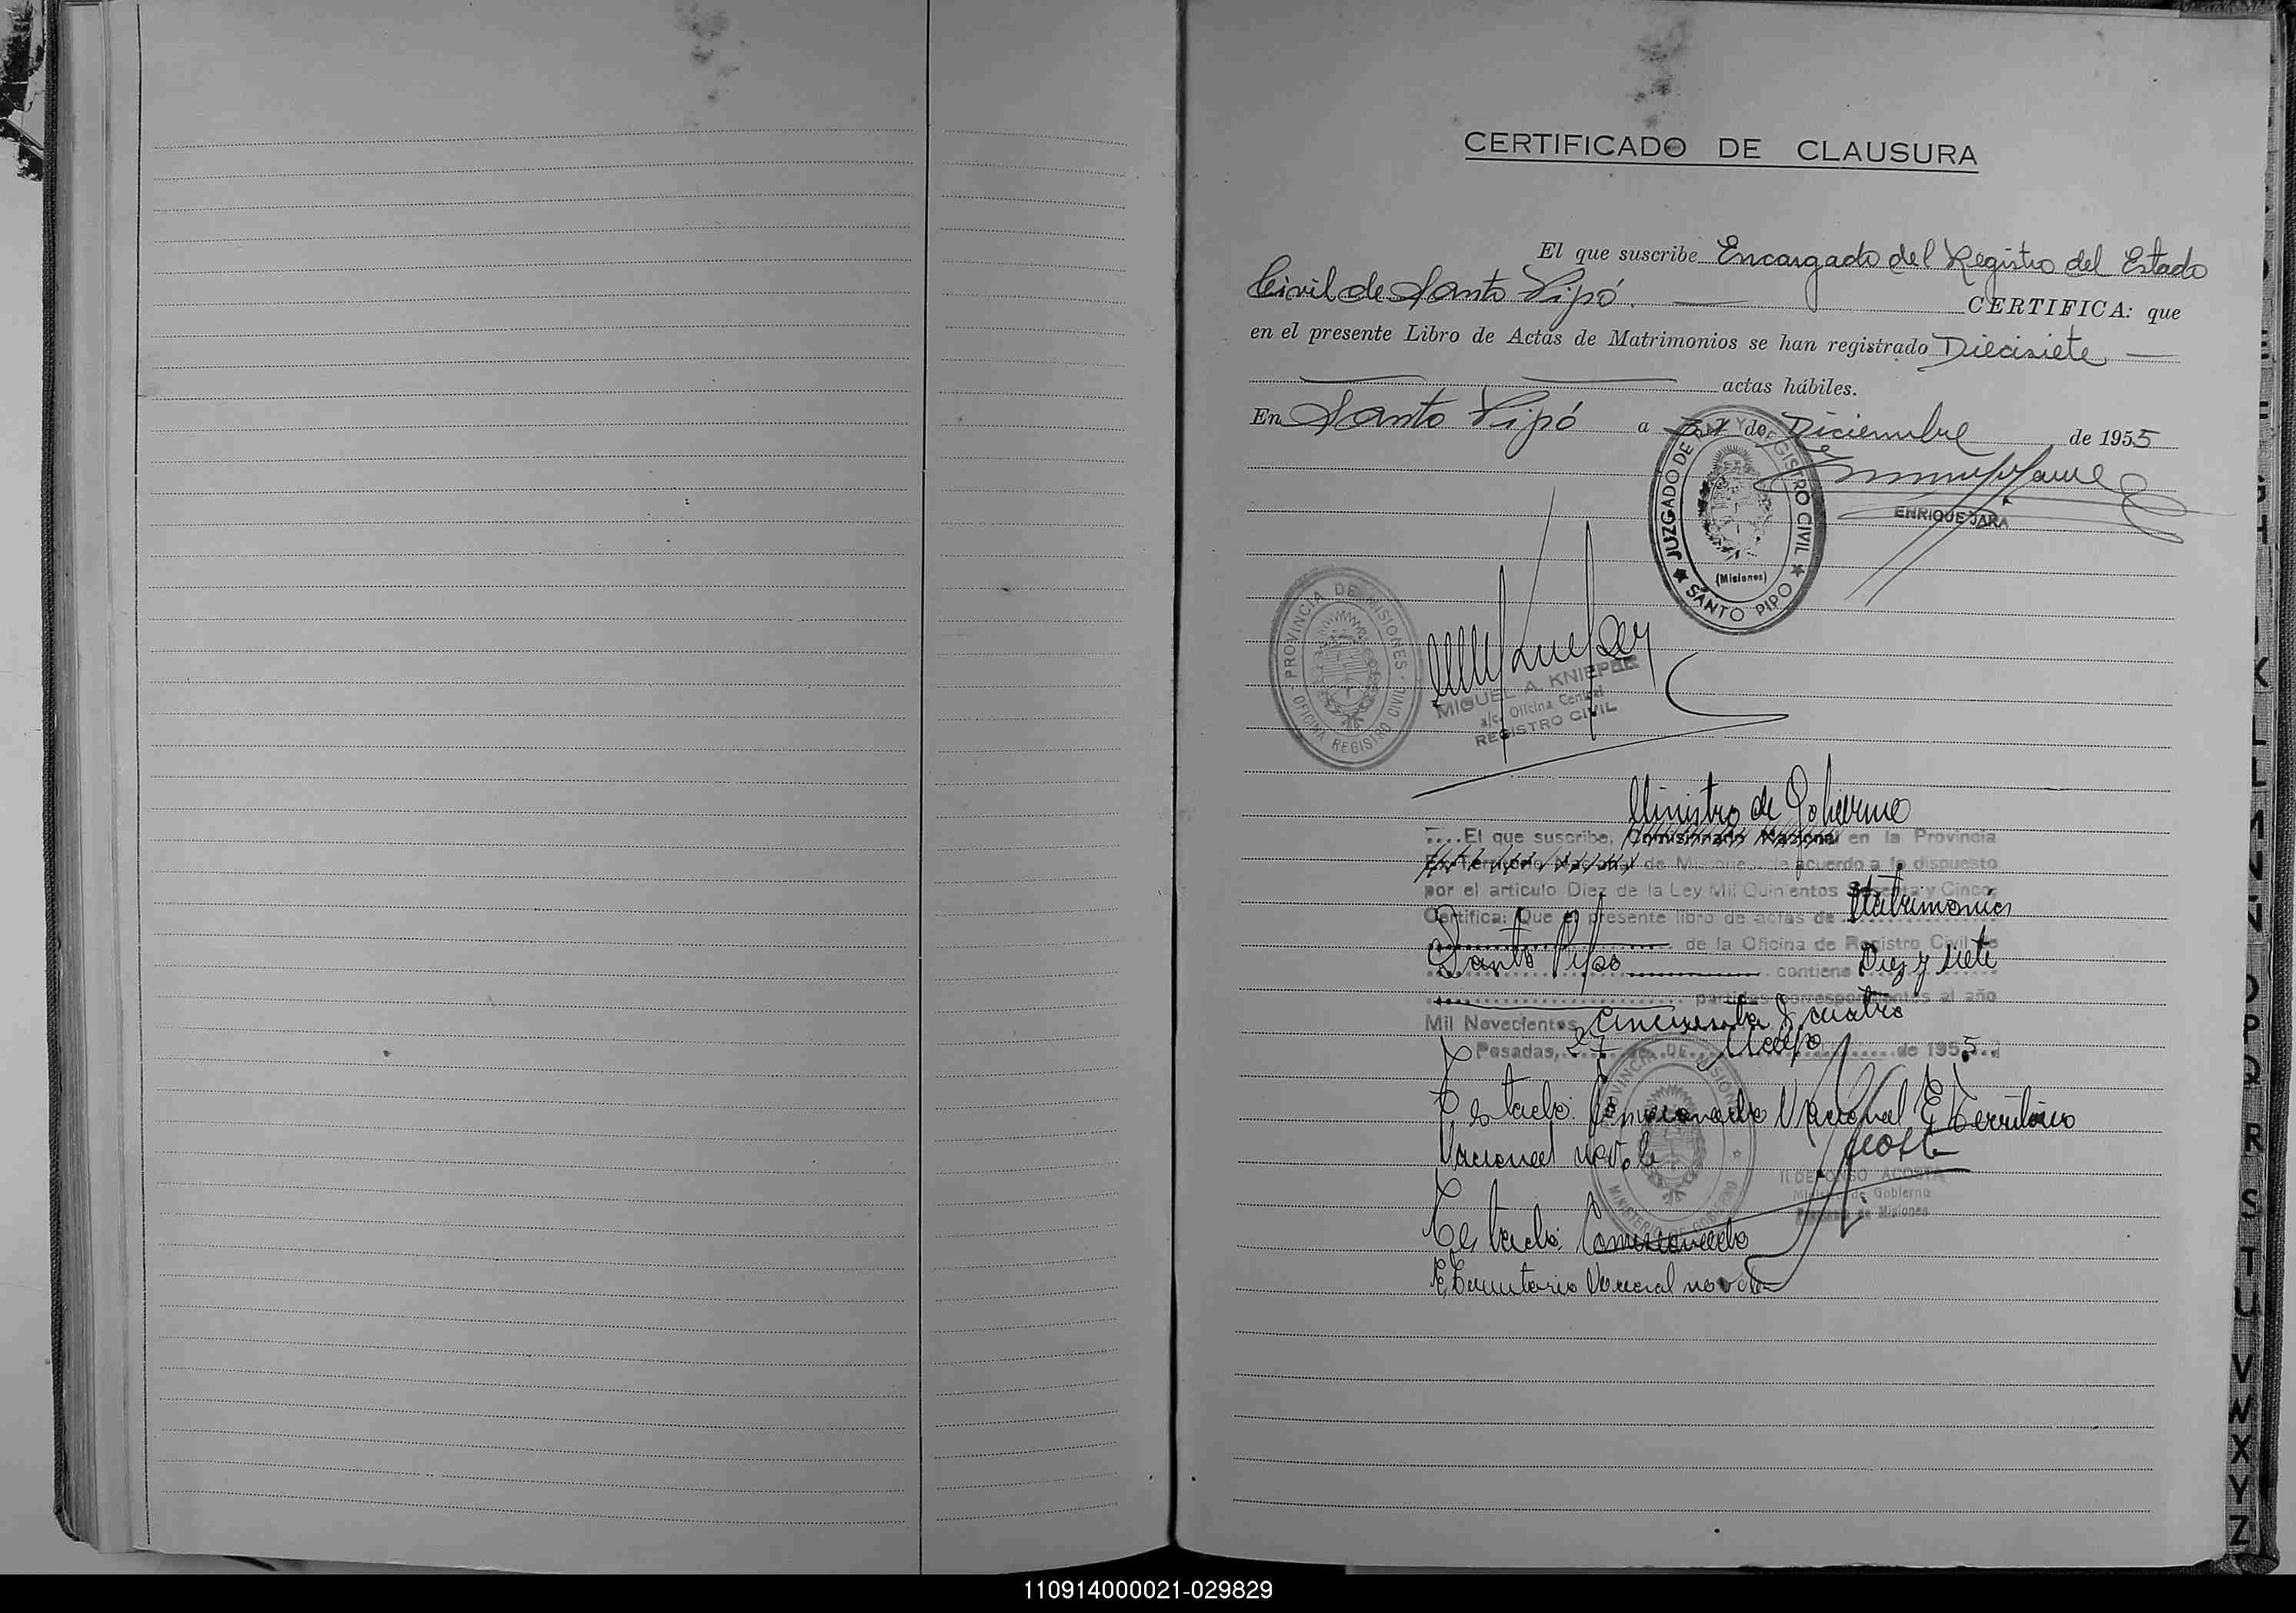 CERTIFICADO DE CLAUSURA
El que suscribe Encargado del Registro del Estado
Civil de Santo Pipó. CERTIFICA: que
en el presente Libro de Actas de Matrimonios se han registrado Diecisiete
actas hábiles.
En Santo Pipó a de Diciembre de 1955
JUZGADO DE PAZ Y REGISTRO CIVIL
(Misiones)
SANTO PIPO
ENRIQUE JARA
PROVINCIA DE MISIONES
OFICINA REGISTRO CIVIL
MIGUEL A. KNIEPER
a/c. Oficina Central
REGISTRO CIVIL
Ministro de Gobierno
El que suscribe, Comisionado Nacional en la Provincia
Ex-Territorio Nacional de Misiones, de acuerdo a lo dispuesto
por el artículo Diez de la Ley Mil Quinientos Sesenta y Cinco,
Certifica: Que el presente libro de actas de Matrimonios
de la Oficina de Registro Civil de
Santo Pipó contiene Diez y siete
partidas correspondientes al año
Mil Novecientos cincuenta y cuatro
Posadas, 27 de Mayo de 1955
Testado: Comisionado Nacional Ex Territorio
Nacional no vale
PROVINCIA DE MISIONES
MINISTERIO DE GOBIERNO
ILDEFONSO ACOSTA
Ministro de Gobierno
Provincia de Misiones
Testado: Comisionado
Ex Territorio Nacional no vale
K L L M N Ñ O P Q R S T U V W X Y Z
110914000021-029829